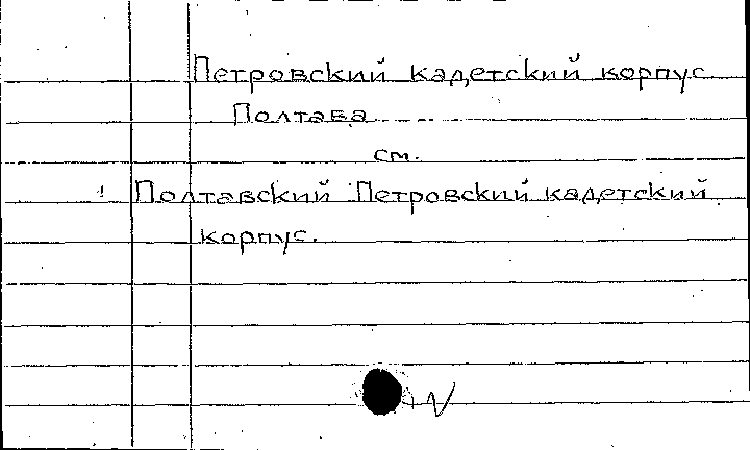 Петровский кадетский корпус
Полтава
см.
Полтавский Петровский кадетский
корпус.